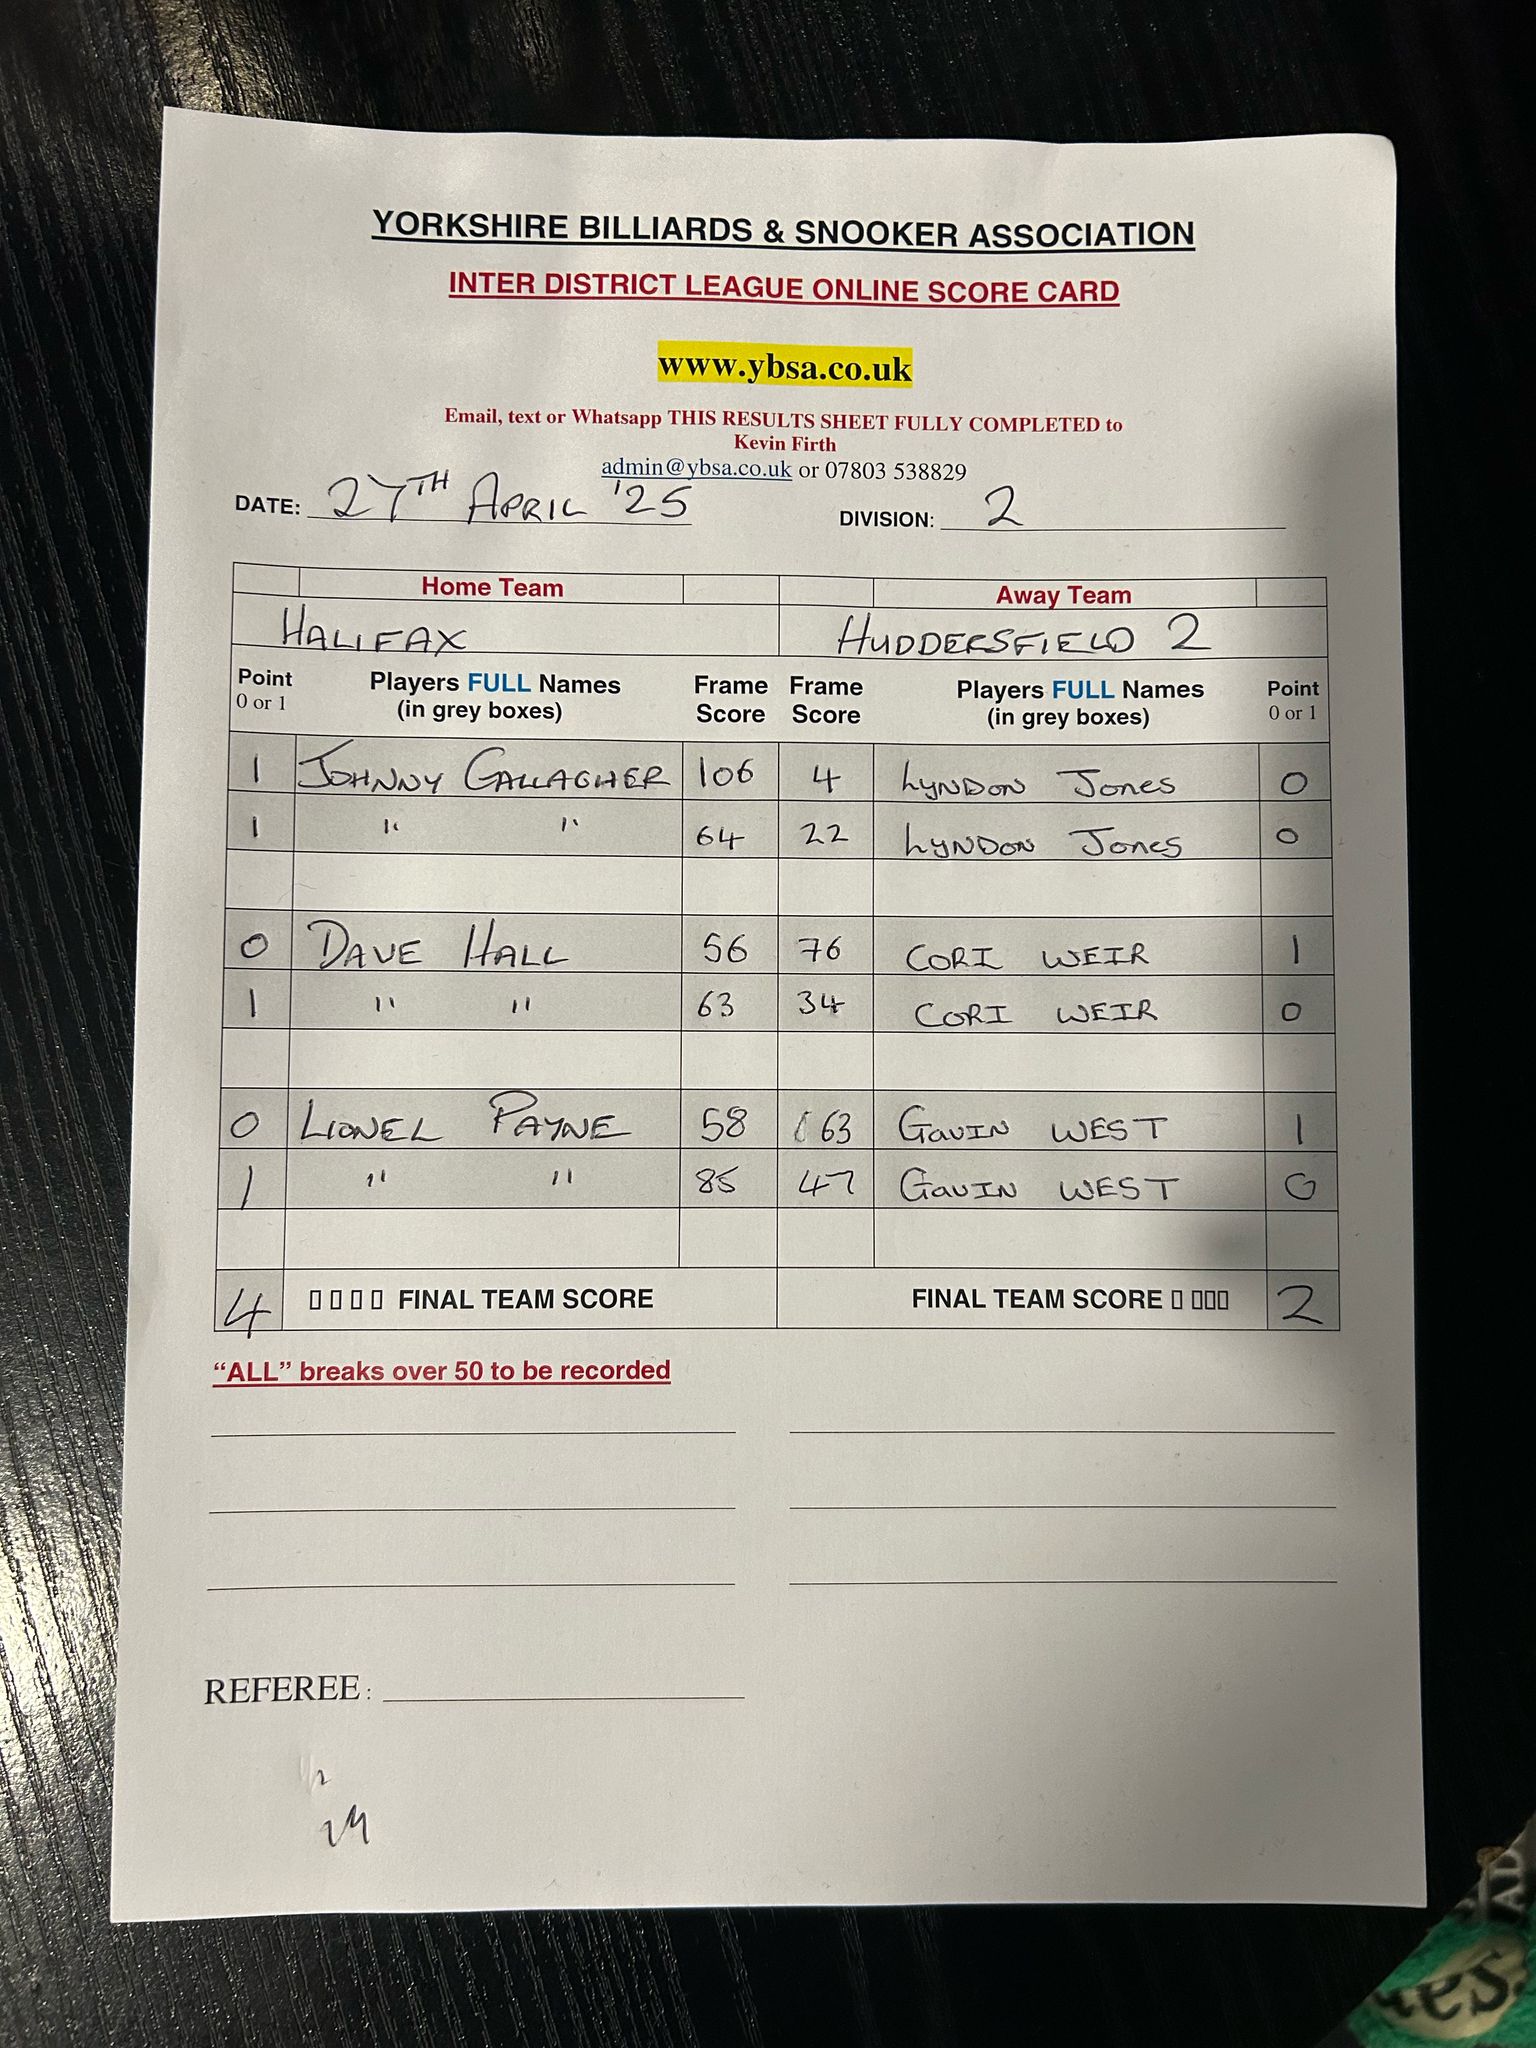 YORKSHIRE BILLIARDS & SNOOKER ASSOCIATION
INTER DISTRICT LEAGUE ONLINE SCORE CARD
www.ybsa.co.uk
Email, text or Whatsapp THIS RESULTS SHEET FULLY COMPLETED to
Kevin Firth
admin@ybsa.co.uk or 07803 538829
DATE: 27TH APRIL '25 DIVISION: 2
Home Team Away Team
HALIFAX HUDDERSFIELD 2
Point Players FULL Names Frame Frame Players FULL Names Point
0 or 1 (in grey boxes) Score Score (in grey boxes) 0 or 1
1 JOHNNY GALLAGHER 106 4 LYNDON JONES 0
1 " " 64 22 LYNDON JONES 0
0 DAVE HALL 56 76 CORI WEIR 1
1 " " 63 34 CORI WEIR 0
0 LIONEL PAYNE 58 63 GAVIN WEST 1
1 " " 85 47 GAVIN WEST 0
4 FINAL TEAM SCORE FINAL TEAM SCORE 2
“ALL” breaks over 50 to be recorded
REFEREE :